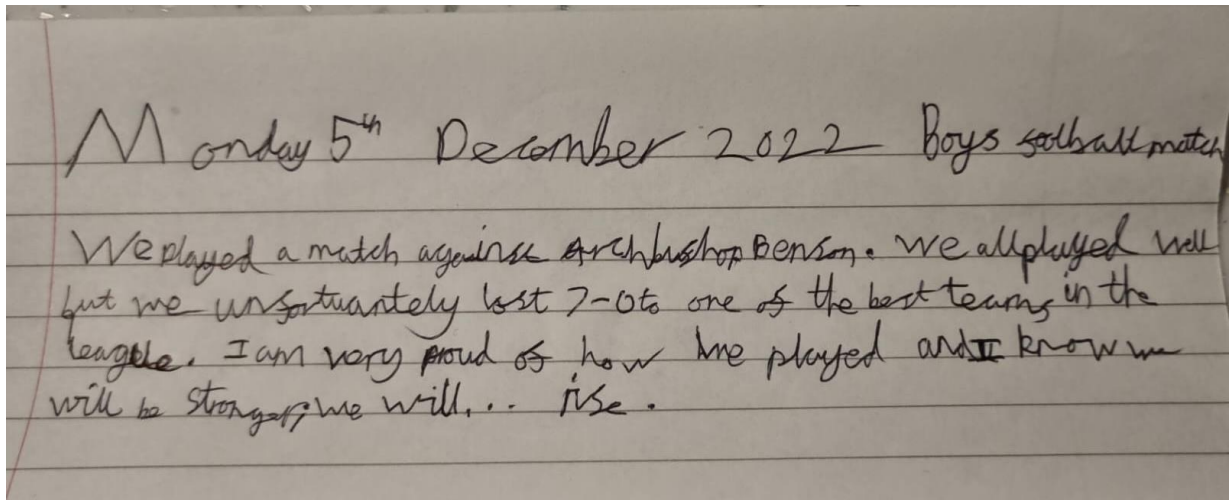 Monday 5th December 2022 Boys football match
We played a match against Archbushop Benson. We all played well
but we unfortuantely lost 7-0 to one of the best teams in the
league. I am very proud of how we played and I know we
will be stronger; we will... rise.